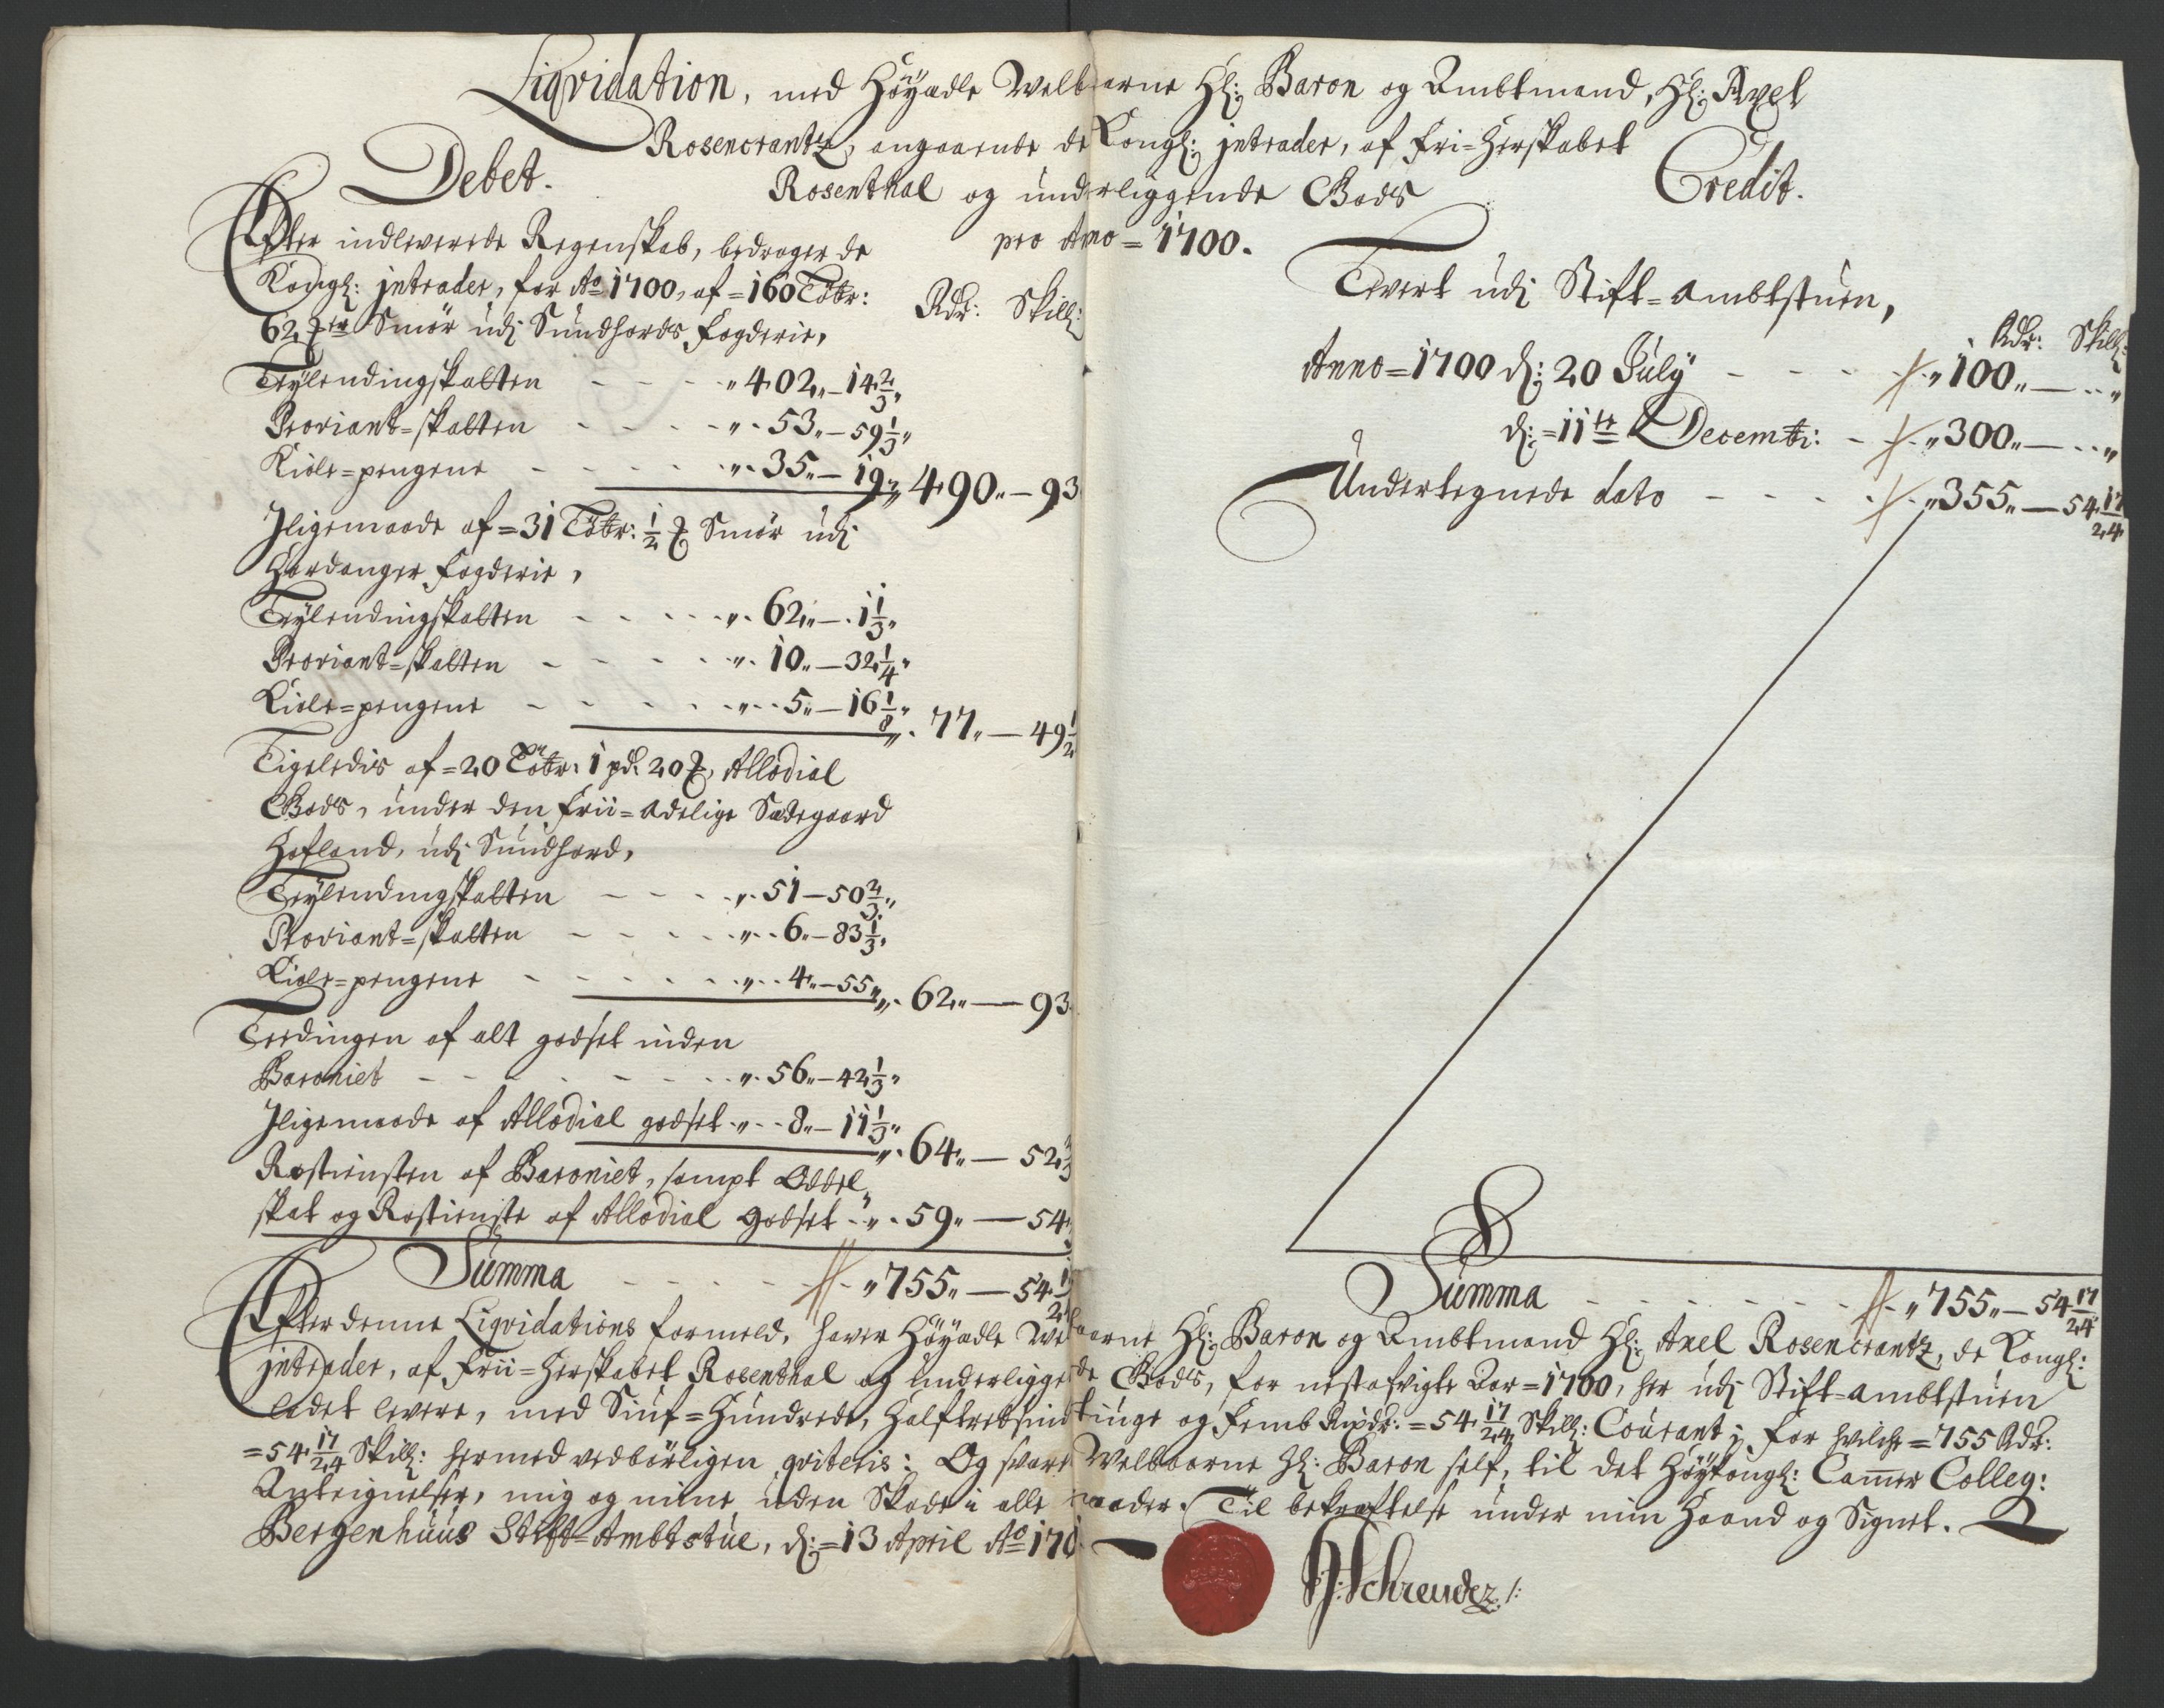 Liqvidation, med Höyædle Welbaarne Hl: Baron og Ambtmand, Hl: Axel
Rosencrantz, angaaende de Kongl: jntrader, af Fri=Herskabet
Rosenthal og underliggende Gods
pro Ao = 1700.
Debet.
Efter indleverede Regenskab, bedrager de
Kongl: jntrader, for Ao 1700, af = 160 Töbr:
62 ℔ Smör udj Sundhords Fogderie,
Rdr: Skill:
Leylendingskatten - - - „ 402„ — 14 2/3„
Proviant=skatten - - - - „ 53„ — 59 1/3„
Kiöle=pengene - - - - „ 35„ — 19„ „ 490„ — 93
Iligemaade af = 31 Töbr: 1/2 ℔ Smör udj
Hardanger Fogderie,
Leylendingskatten - - - - „ 62„ — 1 1/3„
Proviant=skatten - - - - „ 10„ — 32 1/4„
Kiöle=pengene - - - - „ 5„ — 16 1/8„ „ 77„ — 49 1/2
Ligeledis af = 20 Töbr: 1 pd: 20 ℔, Allodial
Gods, under den Frii=adelige Sædegaard
Hafland, udj Sundhord,
Leylendingskatten - - - „ 51 — 50 2/3„
Proviant=skatten - - - - „ 6„ — 83 1/3„
Kiöle=pengene - - - - „ 4„ — 55„ „ 62„ — 93
Leedingen af alt godset inden
Baroniet - - - - „ 56„ — 42 1/3„
Iligemaade af Allodial godset „ 8„ — 11 1/3„ „ 64„ — 52
Rostiensten af Baroniet, sampt Oddel
skat og Rostienste af Allodial godset „ 59„ — 54
Summa - - - - „ 755„ — 54
Credit.
Levert udj Stift=ambtstuen,
Rdr: Skill:
Anno = 1700 d: 20 July - - - „ 100„ — „
d: = 11te Decembr: - „ 300„ — „
Undertegnede dato - - - - „ 355„ — 54 17/24
Summa - - - - „ 755„ — 54 17/24
Efter denne Liqvidations formeld, haver Höyædle Welbaarne Hl: Baron og Ambtmand Hl: Axel Rosencrantz, de Kongl:
jntrader, af Frii=Herskabet Rosenthal og underliggende Gods, for nestafvigte Aar = 1700, her udj Stift=ambtstuen
ladet levere, med Siuf=Hundrede, Halftredsindtiuge og Femb Rixdr: = 54 17/24 Skill: Courant; for hvilche = 755 Rdr:
= 54 17/24 Skill: hermed vedbörligen qviteris: Og svare Welbaarne Hl: Baron self, til det Höykongl: Cammer Colleg:
Anteignelser, mig og mine uden Skade i alle maader. Til bekræftelse under min Haand og Signet.
Bergenhuus Stift=Ambtstue, d: = 13 April Ao 170
Schreuder